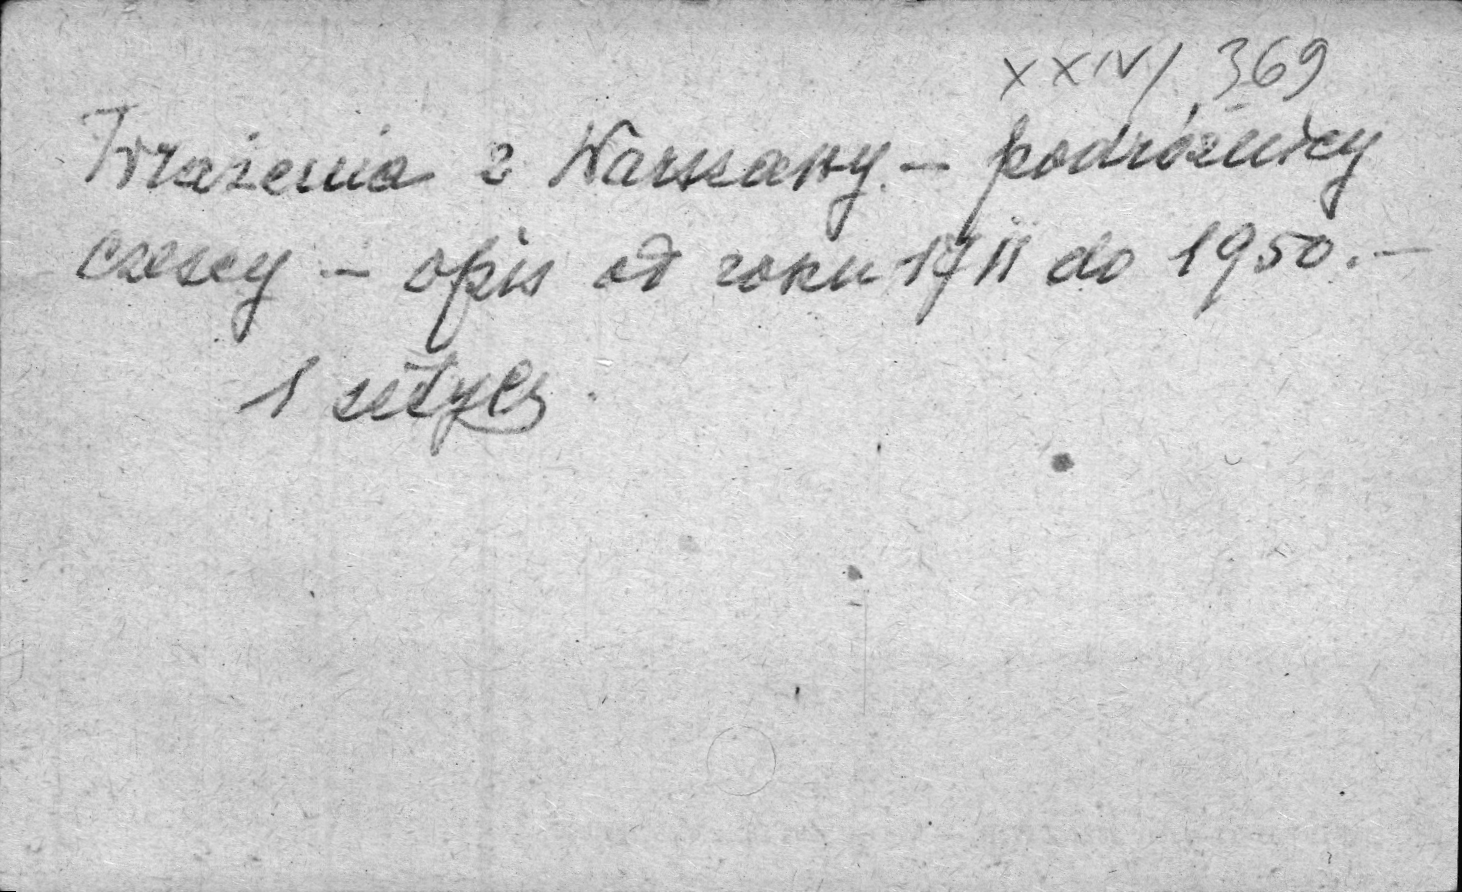 XXIV/369
Wrażenia z Warszawy. – podróżnicy
czescy – opis od roku 1711 do 1950. –
1 zeszyt.